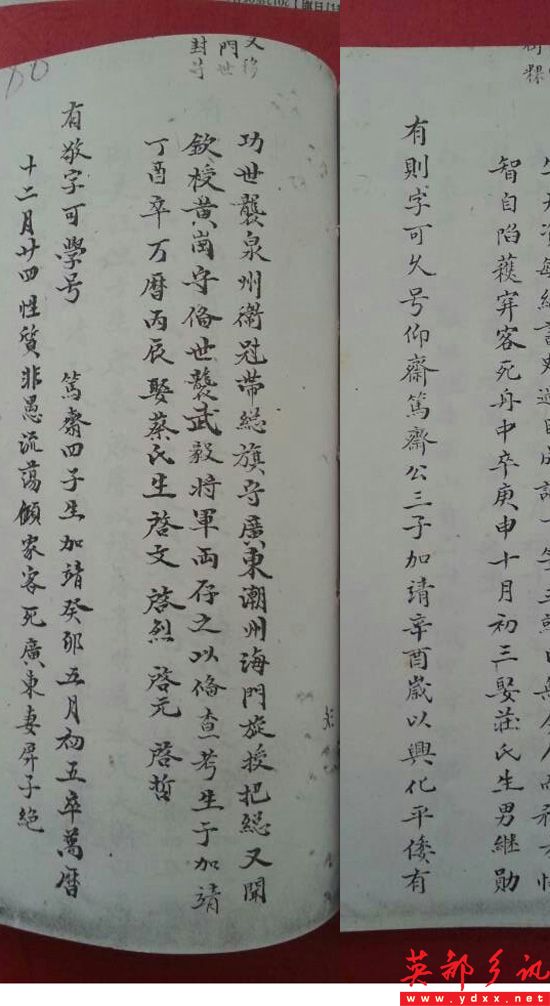 智自陷蒺穽客死舟中卒庚申十月初三娶莊氏生男継勋
有則字可久号仰齋篤齋公三子加靖辛酉歲以興化平倭有
又移
門世
封
功世襲泉州衞冠帶総旗守廣東潮州海門旋授把総又聞
欽授黄崗守俻世襲武毅将軍両存之以俻查考生于加靖
丁酉卒万曆丙辰娶蔡氏生啓文 啓烈 啓元 啓哲
有敬字可學号 篤齋四子生加靖癸卯五月初五卒萬曆
十二月廿四性質非愚流蕩傾家客死廣東妻屏子絕
英都乡讯
www.ydxx.net